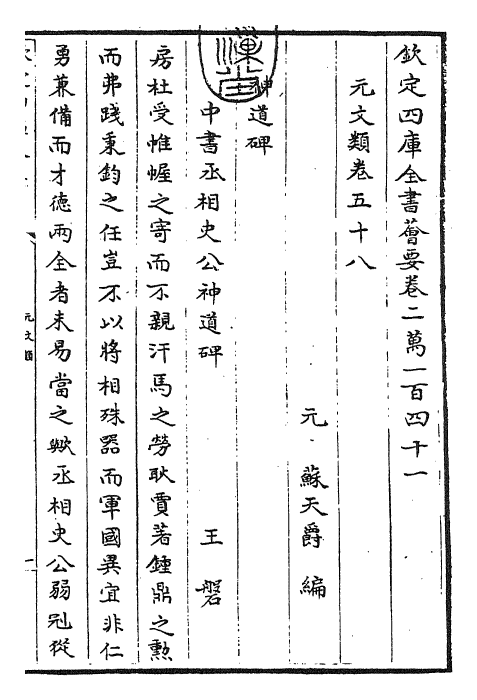 欽定四庫全書薈要卷二萬一百四十一
元文類卷五十八
元 蘇天爵 編
神道碑
中書丞相史公神道碑 王磐
房杜受帷幄之寄而不親汗馬之勞耿賈著鍾鼎之勲
而弗踐秉鈞之任豈不以將相殊器而軍國異宜非仁
勇兼備而才德兩全者未易當之歟丞相史公弱冠從
元文類